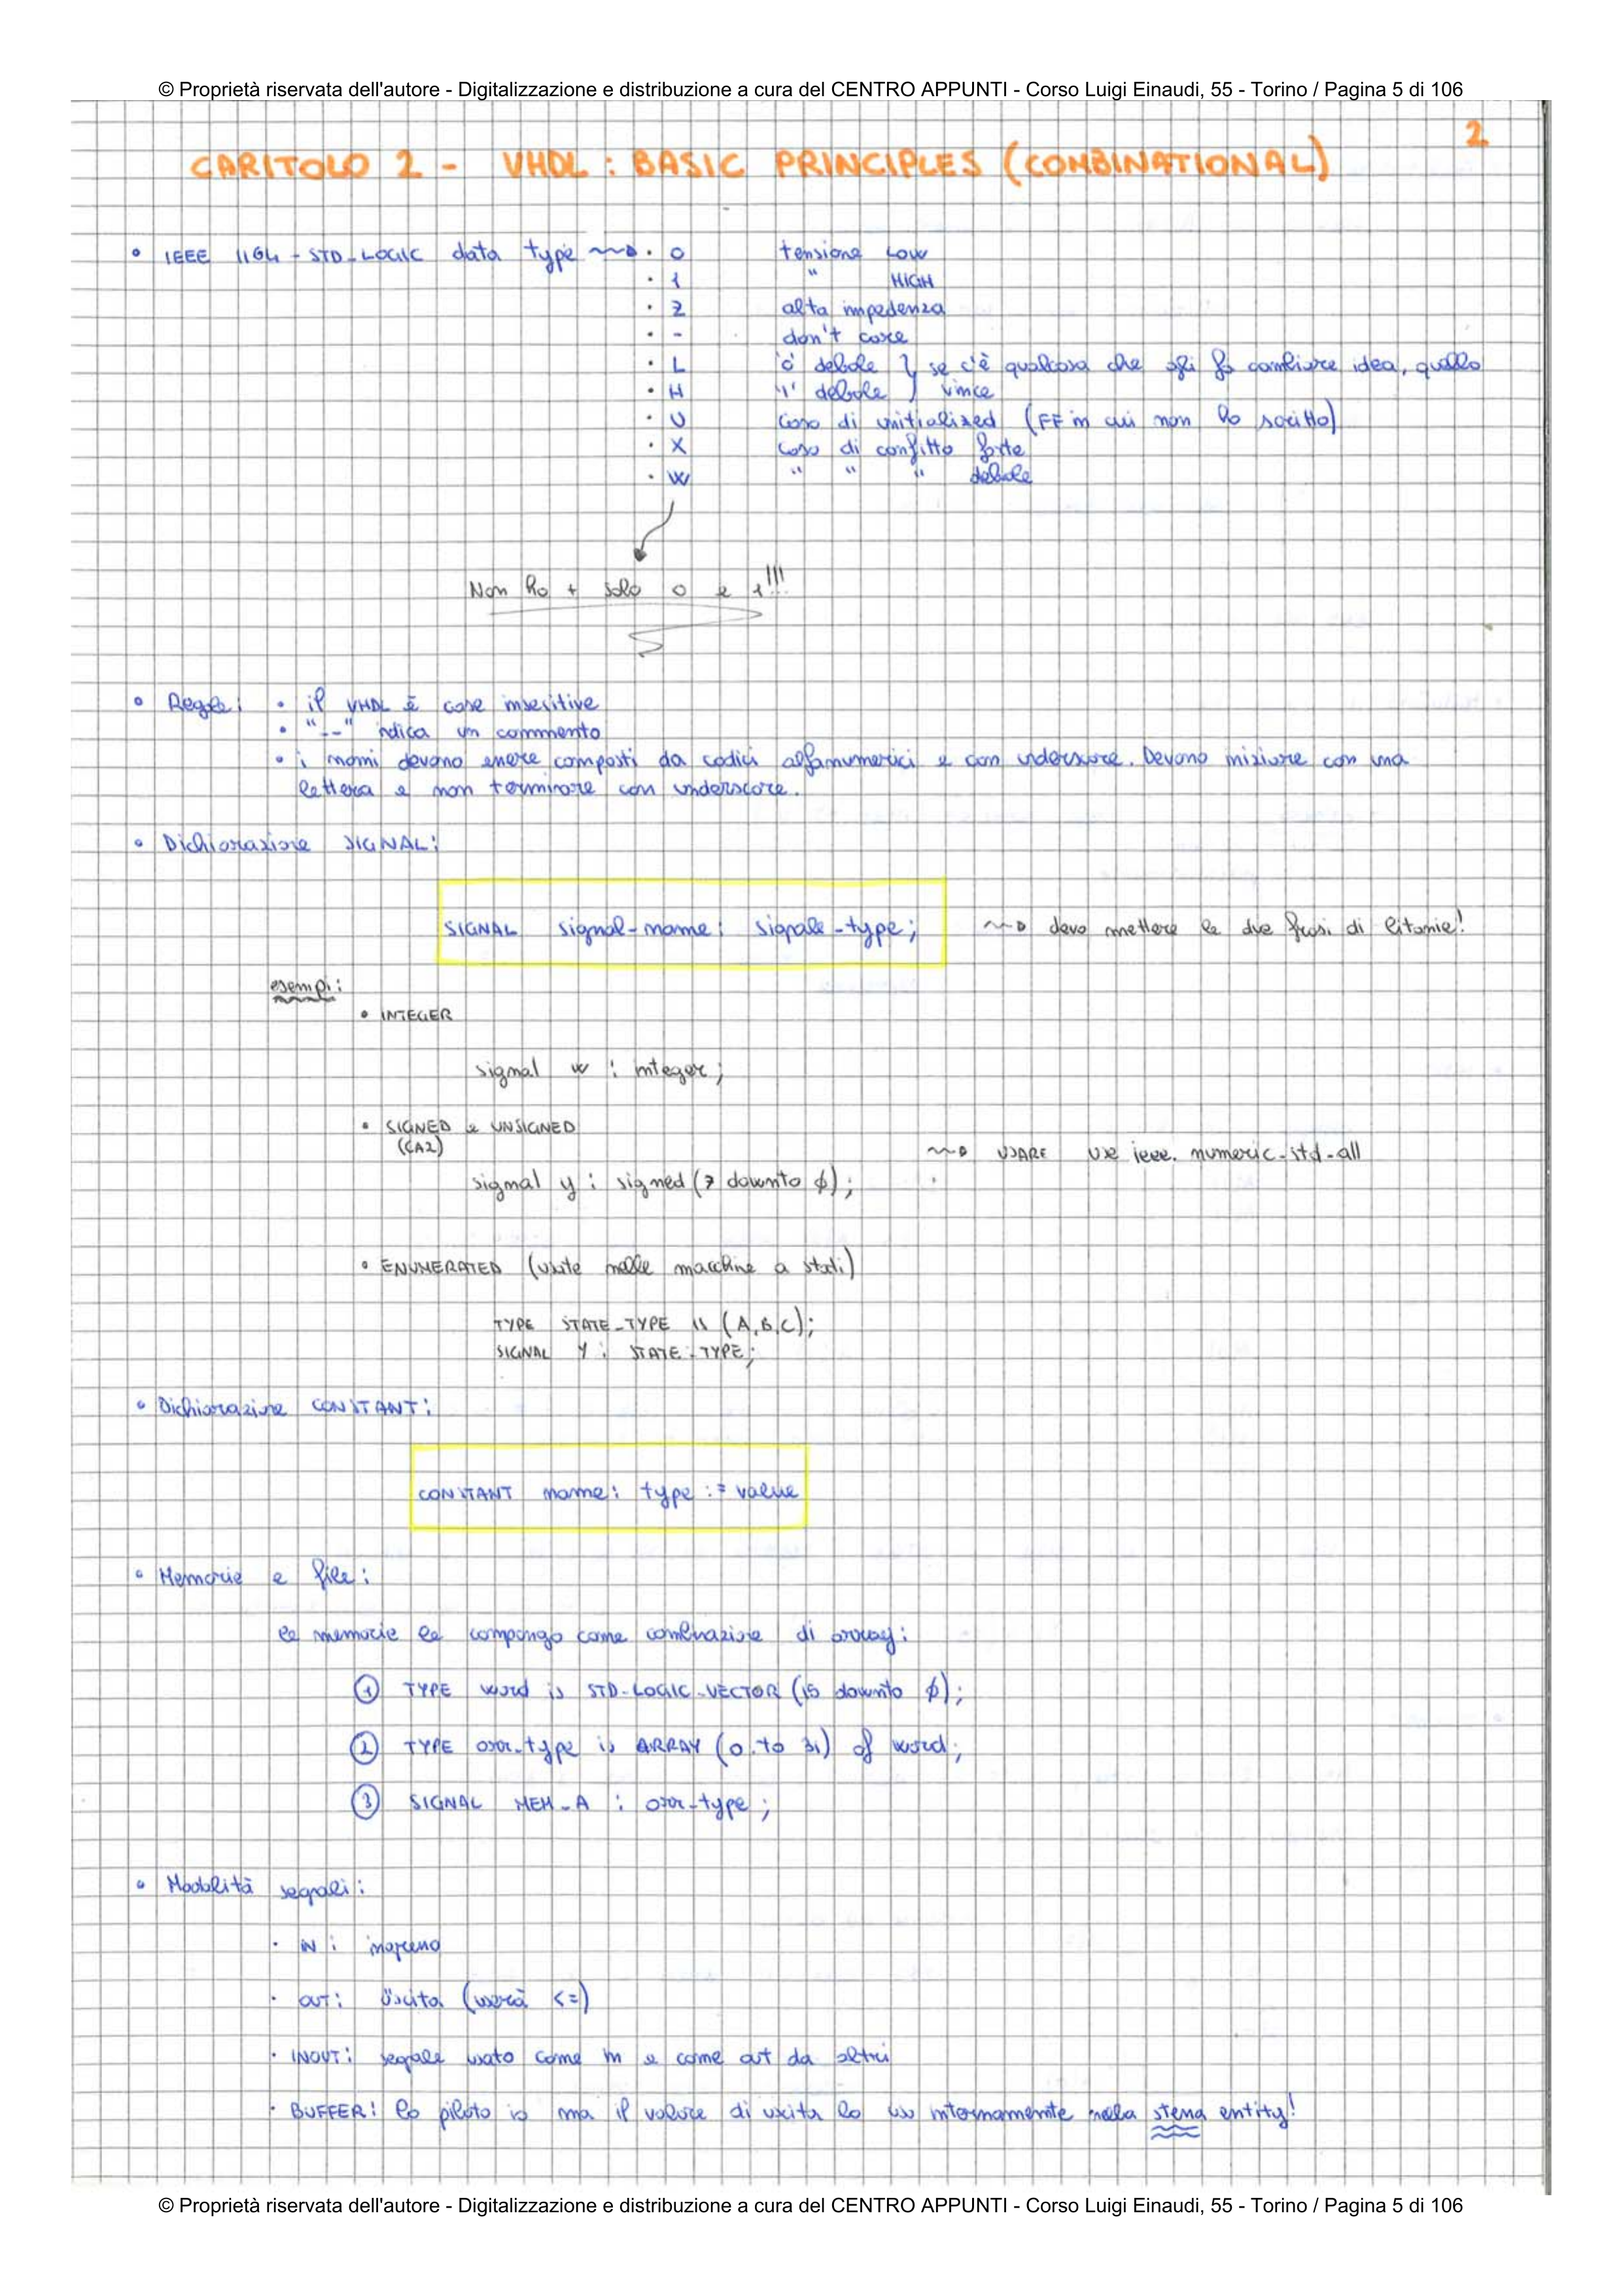 © Proprietà riservata dell'autore - Digitalizzazione e distribuzione a cura del CENTRO APPUNTI - Corso Luigi Einaudi, 55 - Torino / Pagina 5 di 106
2
CAPITOLO 2 - VHDL : BASIC PRINCIPLES (COMBINATIONAL)
• IEEE 1164 - STD_LOGIC data type ~~> · 0 tensione LOW
· 1 " HIGH
· Z alta impedenza
· - don't care
· L '0' debole } se c'è qualcosa che gli fa cambiare idea, quello
· H '1' debole } vince
· U caso di unitialized (FF in cui non ho scritto)
· X caso di conflitto forte
· W " " " debole
Non ho + solo 0 e 1!!!
• Regole: • il VHDL è case insesitive
• "--" indica un commento
• i nomi devono essere composti da codici alfanumerici e con underscore. Devono iniziare con una
lettera e non terminare con underscore.
• Dichiarazione SIGNAL:
SIGNAL signal-name: signale-type; ~~> devo mettere le due frasi di litanie!
esempi:
• INTEGER
signal w : integer;
• SIGNED e UNSIGNED
(CA2)
~~> USARE use ieee. numeric_std_all
signal y : signed (7 downto ϕ);
• ENUMERATED (usate nelle macchine a stati)
TYPE STATE_TYPE IS (A,B,C);
SIGNAL Y : STATE_TYPE;
• Dichiarazione CONSTANT:
CONSTANT name: type := value
• Memorie e file:
le memorie le compongo come combinazione di array:
① TYPE word is STD_LOGIC_VECTOR (15 downto ϕ);
② TYPE arr_type is ARRAY (0 to 31) of word;
③ SIGNAL MEM_A : arr_type;
• Modalità segnali:
· IN : ingresso
· OUT : uscita (userà <=)
· INOUT : segnale usato come in e come out da altri
· BUFFER : lo piloto io ma il valore di uscita lo uso internamente nella stessa entity!
© Proprietà riservata dell'autore - Digitalizzazione e distribuzione a cura del CENTRO APPUNTI - Corso Luigi Einaudi, 55 - Torino / Pagina 5 di 106